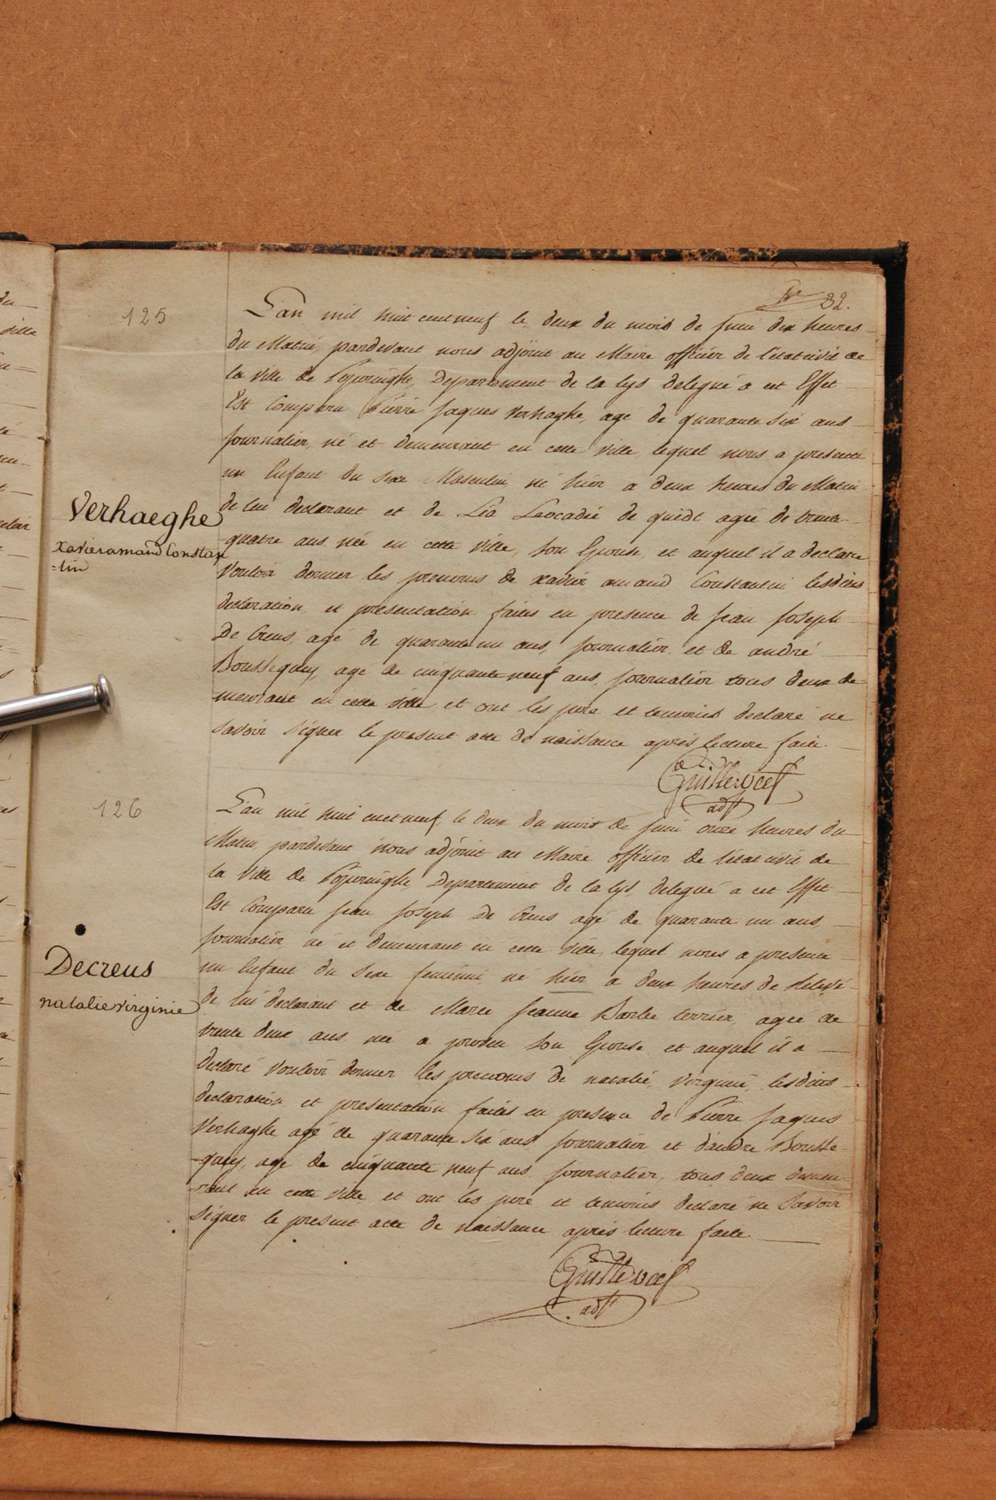 32.
125
L'an mil huit cent neuf le deux du mois de juin dix heures
du Matin, pardevant nous adjoint au Maire officier de l'etat civil de
la Ville de Poperinghe, Departement de la Lys delegué a cet Effet
Est Comparu Pierre Jaques Verhaghe, age de quarante six ans
journalier, né et demeurant en cette Ville, lequel nous a presenté
un Enfant du sexe Masculin né hier a deux heures du Matin
Verhaeghe
xavier amand Constan
-tin
de lui declarant et de Leocadie de quidt agée de trente
quatre ans née en cette Ville, son Epouse, et auquel il a declare
Vouloir donner les prenoms de xavier amand Constantin lesdites
declaration et presentation faites en presence de Jean Joseph
De Creus, age de quarante un ans, journalier et de andré
age de cinquante neuf ans, journalier tous deux de
meurant en cette Ville et ont les pere et temoins declaré ne
Savoir Signer le present acte de naissance après lecture faite.
adjt
126
L'an mil huit cent neuf le deux du mois de juin onze heures du
Matin, pardevant nous adjoint au Maire officier de l'etat civil de
la Ville de Poperinghe Departement de la Lys delegué a cet Effet
Est Comparu Jean Joseph De Creus agé de quarante un ans
journalier né et demeurant en cette Ville, lequel nous a presenté
Decreus
natalie virginie
un Enfant du Sexe feminin né hier a deux heures de
de lui declarant et de Marie Jeanne Barbe terrier agee de
trente deux ans née a son Epouse et auquel il a
declaré Vouloir donner les prenoms de natalie Virginie, lesdites
declaration et presentation faites en presence de Pierre Jaques
Verhaghe agé de quarante six ans journalier et d'andré
age de cinquante neuf ans journalier, tous deux demeu
-rant en cette Ville et ont les pere et temoins declaré ne Savoir
Signer le present acte de naissance après lecture faite
adjt